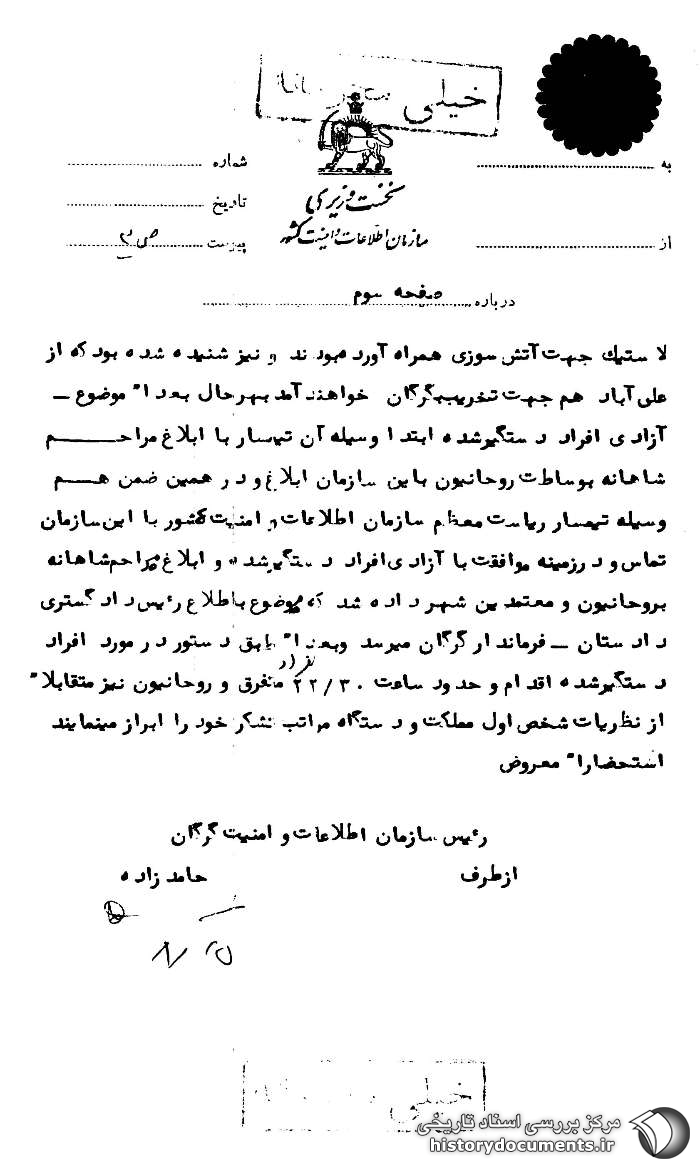 خیلی
به
شماره
نخست وزیری
تاریخ
سازمان اطلاعات و امنیت کشور
از
پیوست ص ۳
درباره صفحه سوم
لاستیک جهت آتش سوزی همراه آورده بودند و نیز شنیده شده بود که از
علی آباد هم جهت تخریب بگرگان خواهند آمد بهر حال بعداً موضوع ـ
آزادی افراد دستگیرشده ابتدا وسیله آن تیمسار با ابلاغ مراحم
شاهانه بوساطت روحانیون باین سازمان ابلاغ و در همین ضمن هم
وسیله تیمسار ریاست معظم سازمان اطلاعات و امنیت کشور با این سازمان
تماس و در زمینه موافقت با آزادی افراد دستگیرشده و ابلاغ مراحم شاهانه
بروحانیون و معتمدین شهر داده شد که موضوع باطلاع رئیس دادگستری
دادستان ـ فرماندار گرگان میرسد وبعداً طبق دستور در مورد افراد
دستگیرشده اقدام و حدود ساعت ۲۲/۳۰ متفرق و روحانیون نیز متقابلاً
از نظریات شخص اول مملکت و دستگاه مراتب تشکر خود را ابراز مینمایند
استحضاراً معروض
رئیس سازمان اطلاعات و امنیت گرگان
ازطرف حامد زاده
خیلی
مرکز بررسی اسناد تاریخی
historydocuments.ir